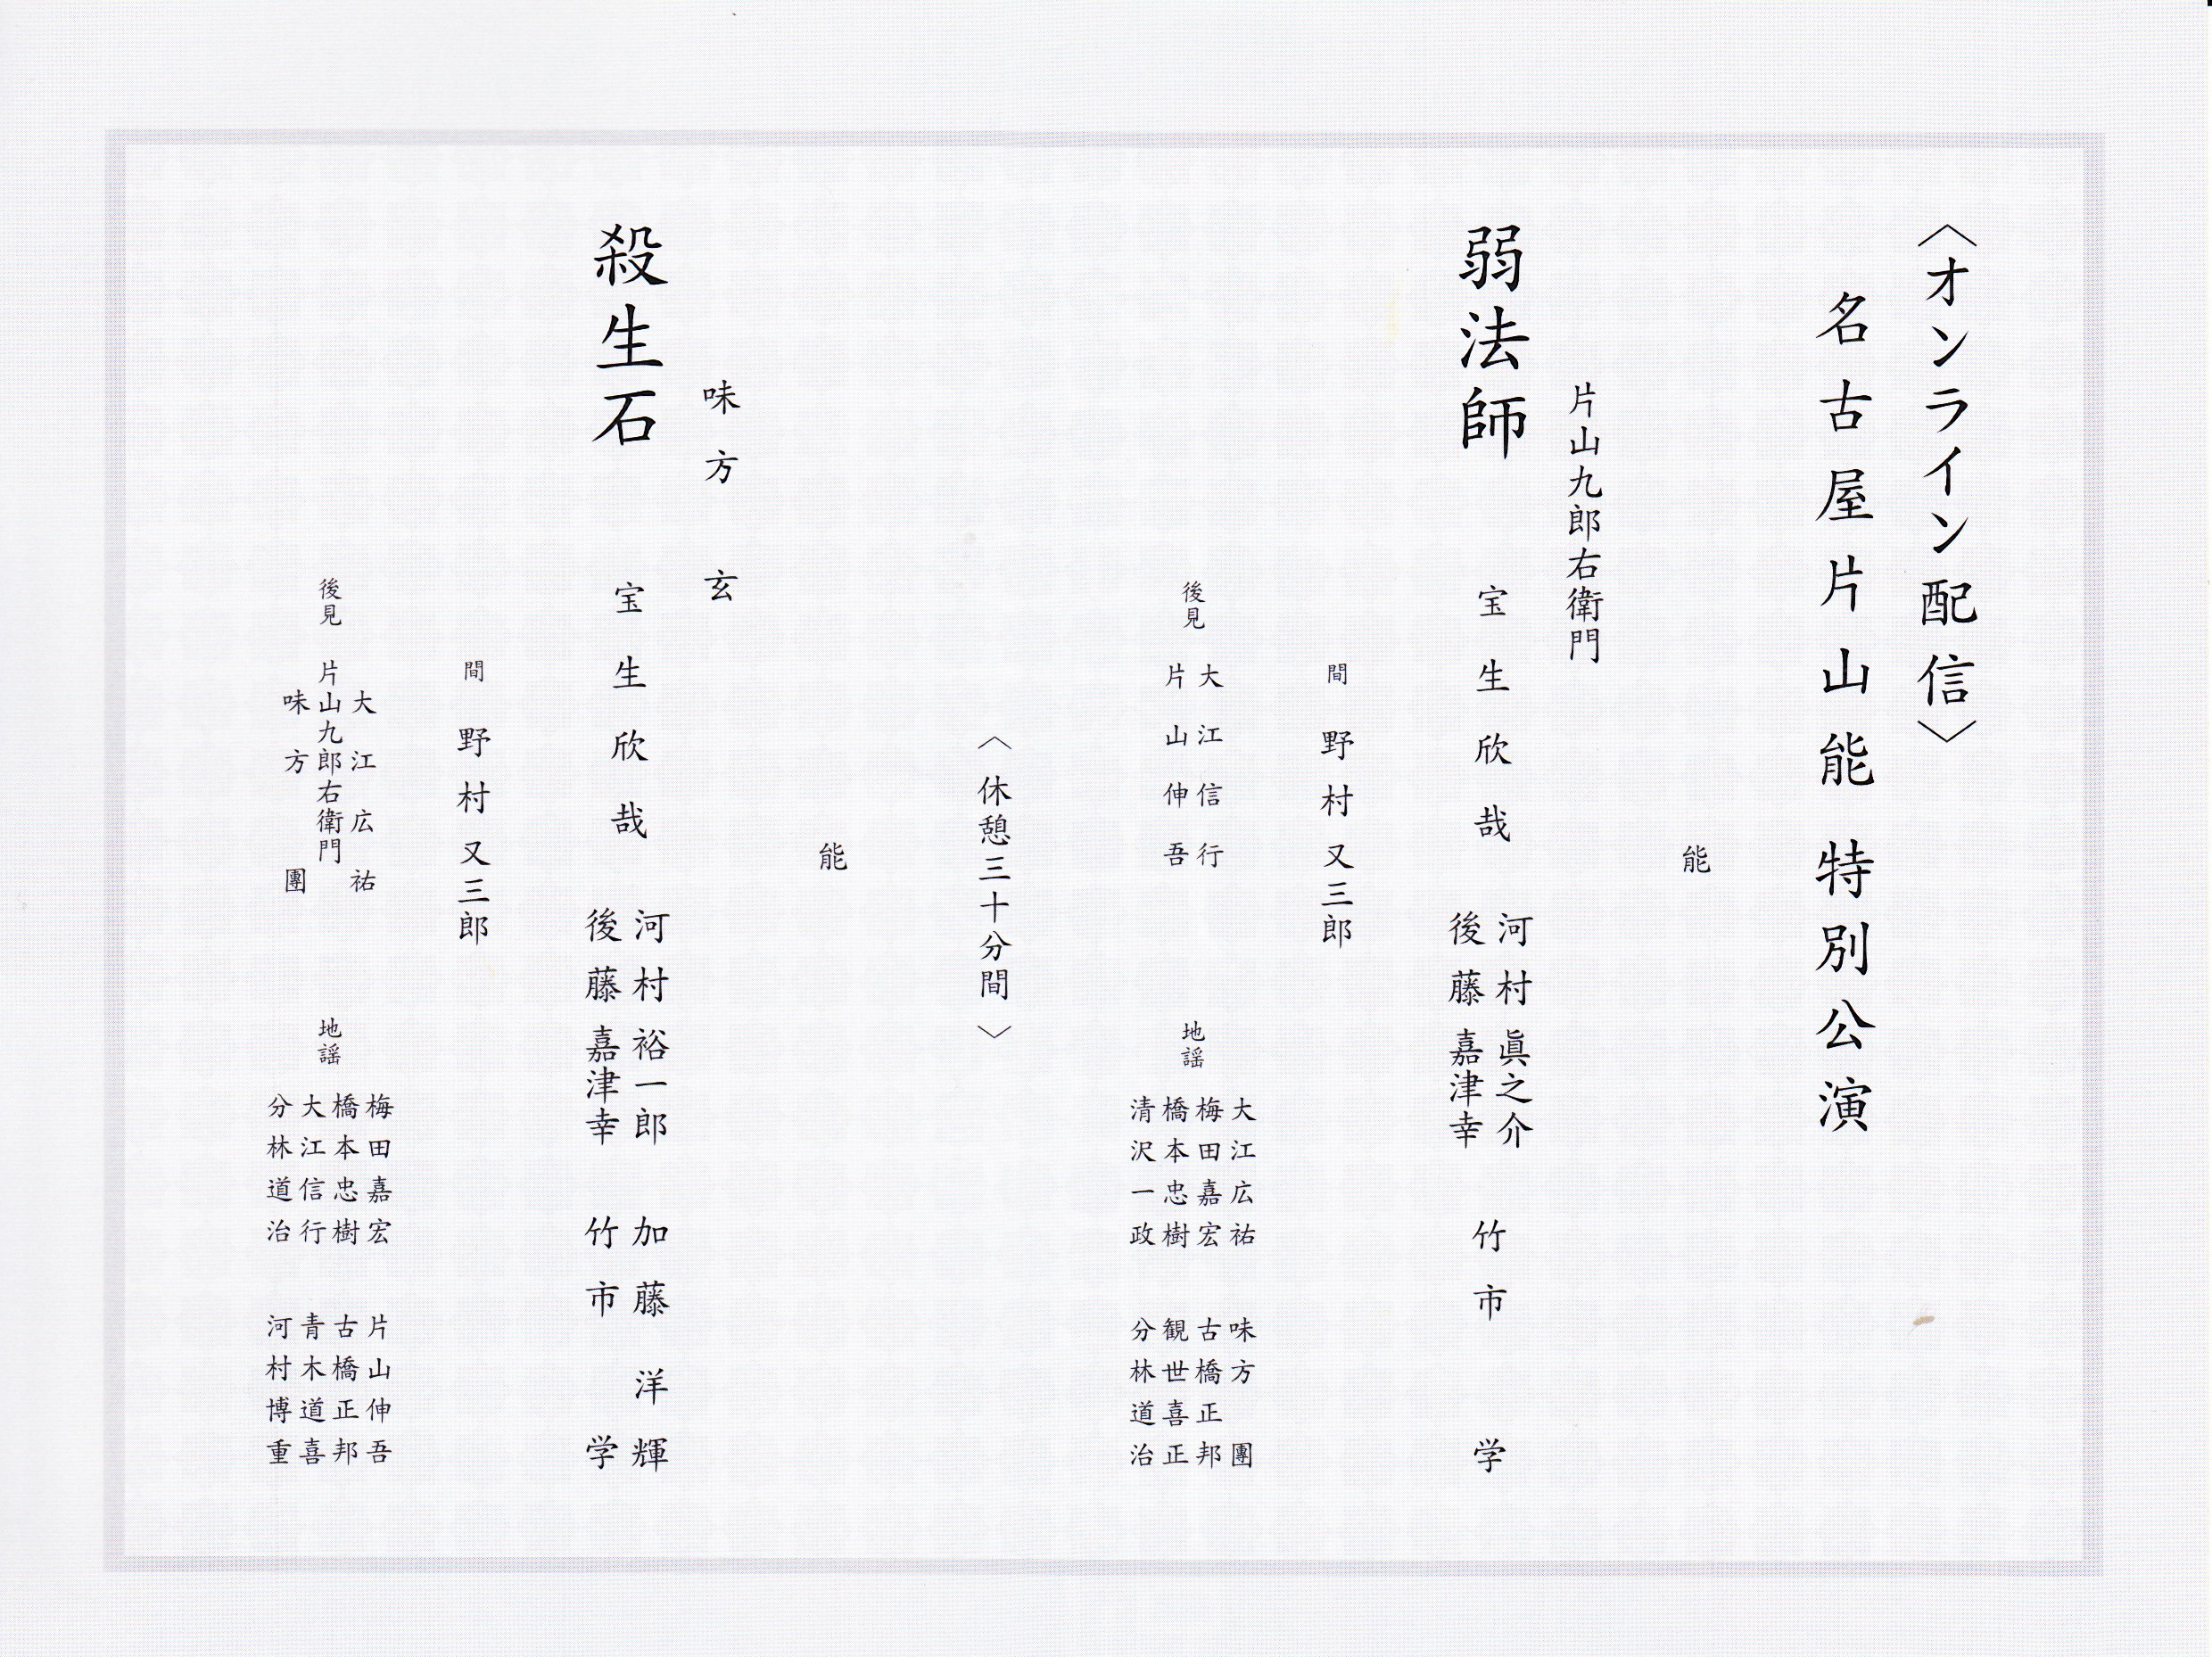 〈オンライン配信〉
名古屋片山能 特別公演
能
片山九郎右衛門
弱法師
宝生欣哉
河村眞之介
後藤嘉津幸
竹市 学
間 野村又三郎
後見
大江信行
片山伸吾
地謡
大江広祐
梅田嘉宏
橋本忠樹
清沢一政
味方 團
古橋正邦
観世喜正
分林道治
〈休憩三十分間〉
能
味方 玄
殺生石
宝生欣哉
河村裕一郎
後藤嘉津幸
加藤洋輝
竹市 学
間 野村又三郎
後見
大江広祐
片山九郎右衛門
味方 團
地謡
梅田嘉宏
橋本忠樹
大江信行
分林道治
片山伸吾
古橋正邦
青木道喜
河村博重